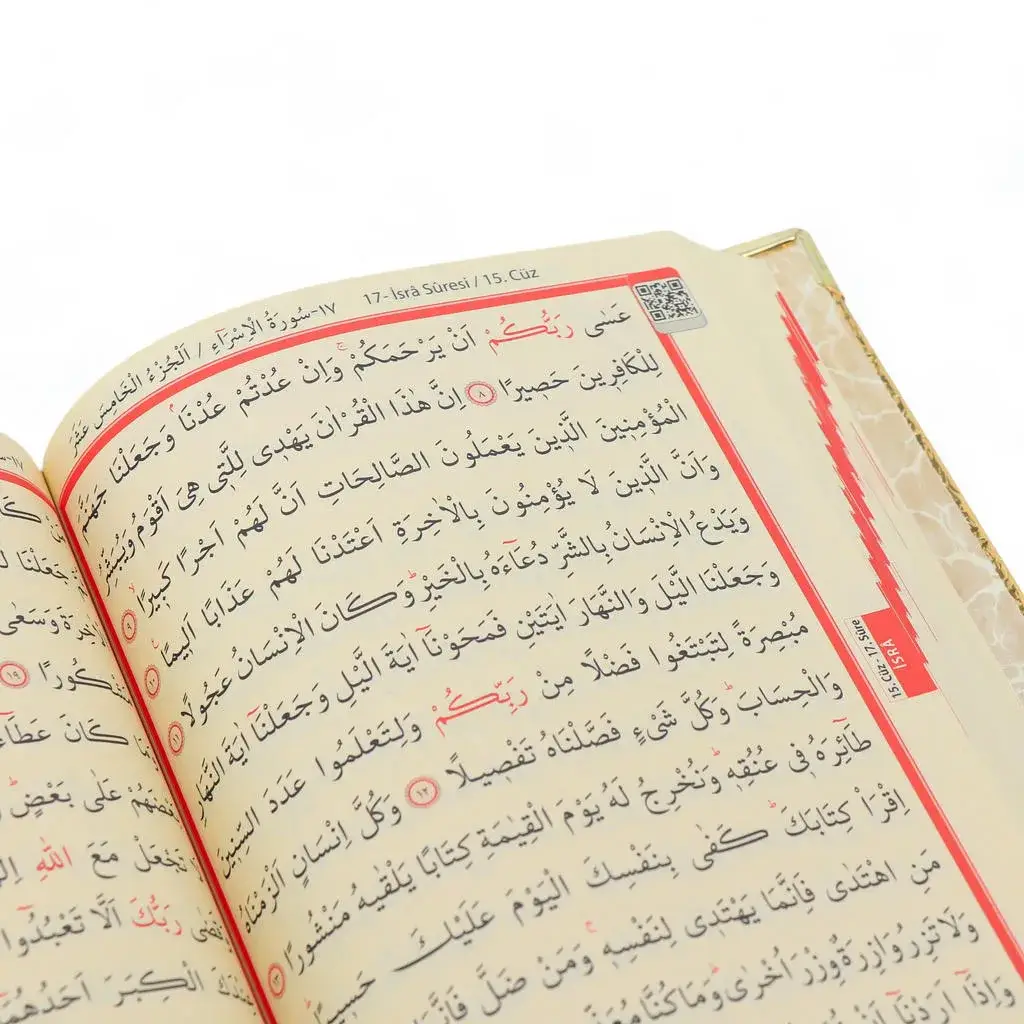 ١٧-سُورَةُ الْاِسْرَٓاءِ / اَلْجُزْءُ الْخَامِسَ عَشَرَ 17- İsrâ Sûresi / 15. Cüz
عَسٰى رَبُّكُمْ اَنْ يَرْحَمَكُمْۚ وَاِنْ عُدْتُمْ عُدْنَاۢ وَجَعَلْنَا جَهَنَّمَ
لِلْكَافِرٖينَ حَصٖيرًا ﴿٨﴾ اِنَّ هٰذَا الْقُرْاٰنَ يَهْدٖى لِلَّتٖى هِىَ اَقْوَمُ وَيُبَشِّرُ
الْمُؤْمِنٖينَ الَّذٖينَ يَعْمَلُونَ الصَّالِحَاتِ اَنَّ لَهُمْ اَجْرًا كَبٖيرًاۙ ﴿٩﴾
وَاَنَّ الَّذٖينَ لَا يُؤْمِنُونَ بِالْاٰخِرَةِ اَعْتَدْنَا لَهُمْ عَذَابًا اَلٖيمًا ﴿١٠﴾
وَيَدْعُ الْاِنْسَانُ بِالشَّرِّ دُعَٓاءَهُ بِالْخَيْرِؕ وَكَانَ الْاِنْسَانُ عَجُولًا ﴿١١﴾
وَجَعَلْنَا الَّيْلَ وَالنَّهَارَ اٰيَتَيْنِ فَمَحَوْنَٓا اٰيَةَ الَّيْلِ وَجَعَلْنَٓا اٰيَةَ النَّهَارِ
مُبْصِرَةً لِتَبْتَغُوا فَضْلًا مِنْ رَبِّكُمْ وَلِتَعْلَمُوا عَدَدَ السِّنٖينَ
وَالْحِسَابَؕ وَكُلَّ شَیْءٍ فَصَّلْنَاهُ تَفْصٖيلًا ﴿١٢﴾ وَكُلَّ اِنْسَانٍ اَلْزَمْنَاهُ
طَٓائِرَهُ فٖى عُنُقِهٖؕ وَنُخْرِجُ لَهُ يَوْمَ الْقِيٰمَةِ كِتَابًا يَلْقٰيهُ مَنْشُورًا ﴿١٣﴾
اِقْرَاْ كِتَابَكَؕ كَفٰى بِنَفْسِكَ الْيَوْمَ عَلَيْكَ حَسٖيبًا
مَنِ اهْتَدٰى فَاِنَّمَا يَهْتَدٖى لِنَفْسِهٖۚ وَمَنْ ضَلَّ فَاِنَّمَا
وَلَا تَزِرُ وَازِرَةٌ وِزْرَ اُخْرٰىؕ وَمَا كُنَّا
وَاِذَٓا اَرَدْنَٓا اَنْ
15. Cüz - 17. Sûre
İSRÂ
جَعَلْنَا
وَسَعٰى
﴿١٩﴾
كَانَ عَطَٓاءُ
عَلٰى بَعْضٍؕ
تَجْعَلْ مَعَ اللّٰهِ
رَبُّكَ اَلَّا تَعْبُدُٓوا
عِنْدَكَ الْكِبَرَ اَحَدُهُمَٓا